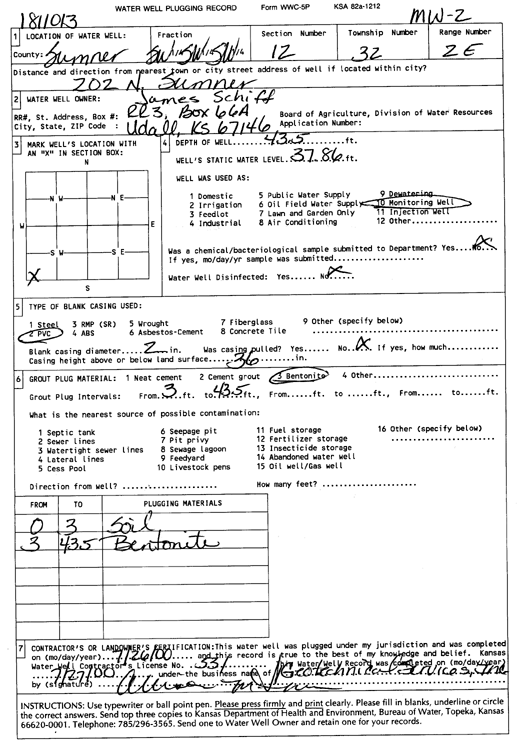 WATER WELL PLUGGING RECORD Form WWC-5P KSA 82a-1212
1811013 MW-2
1 LOCATION OF WATER WELL: Fraction Section Number Township Number Range Number
County: Sumner SW 1/4 SW 1/4 SW 1/4 12 32 2E
Distance and direction from nearest town or city street address of well if located within city?
202 N. Sumner
2 WATER WELL OWNER: James Schiff
RR#, St. Address, Box #: RR3, Box 66A Board of Agriculture, Division of Water Resources
City, State, ZIP Code : Udall, KS 67146 Application Number:
3 MARK WELL'S LOCATION WITH AN "X" IN SECTION BOX:
N
N W N E
W E
S W S E
X
S
4 DEPTH OF WELL......43.5......ft.
WELL'S STATIC WATER LEVEL..37.86.ft.
WELL WAS USED AS:
1 Domestic 5 Public Water Supply 9 Dewatering
2 Irrigation 6 Oil Field Water Supply 10 Monitoring Well
3 Feedlot 7 Lawn and Garden Only 11 Injection Well
4 Industrial 8 Air Conditioning 12 Other..............
Was a chemical/bacteriological sample submitted to Department? Yes....No X
If yes, mo/day/yr sample was submitted................
Water Well Disinfected: Yes...... No X
5 TYPE OF BLANK CASING USED:
1 Steel 3 RMP (SR) 5 Wrought 7 Fiberglass 9 Other (specify below)
2 PVC 4 ABS 6 Asbestos-Cement 8 Concrete Tile ....................
Blank casing diameter...2...in. Was casing pulled? Yes...... No..X If yes, how much.......
Casing height above or below land surface...36......in.
6 GROUT PLUG MATERIAL: 1 Neat cement 2 Cement grout 3 Bentonite 4 Other..............
Grout Plug Intervals: From..3...ft. to.43.5.ft., From......ft. to ......ft., From......ft. to......ft.
What is the nearest source of possible contamination:
1 Septic tank 6 Seepage pit 11 Fuel storage 16 Other (specify below)
2 Sewer lines 7 Pit privy 12 Fertilizer storage ....................
3 Watertight sewer lines 8 Sewage lagoon 13 Insecticide storage
4 Lateral lines 9 Feedyard 14 Abandoned water well
5 Cess Pool 10 Livestock pens 15 Oil well/Gas well
Direction from well? .................. How many feet? ..................
FROM TO PLUGGING MATERIALS
0 3 Soil
3 43.5 Bentonite
7 CONTRACTOR'S OR LANDOWNER'S CERTIFICATION: This water well was plugged under my jurisdiction and was completed
on (mo/day/year) 7/26/00 and this record is true to the best of my knowledge and belief. Kansas
Water Well Contractor's License No. 531 This Water Well Record was completed on (mo/day/year)
7/27/00 under the business name of Geotechnical Services, Inc
by (signature)
INSTRUCTIONS: Use typewriter or ball point pen. Please press firmly and print clearly. Please fill in blanks, underline or circle
the correct answers. Send top three copies to Kansas Department of Health and Environment, Bureau of Water, Topeka, Kansas
66620-0001. Telephone: 785/296-3565. Send one to Water Well Owner and retain one for your records.